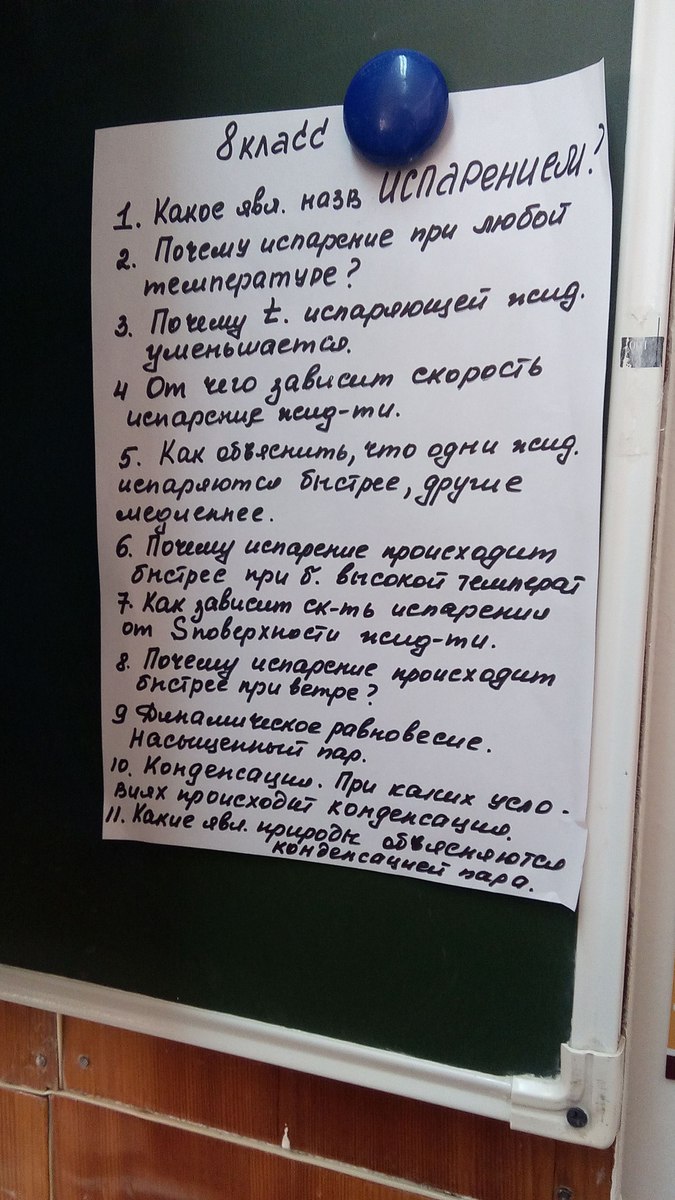 8 класс
1. Какое явл. назв испарением?
2. Почему испарение при любой
температуре?
3. Почему t. испаряющей жид.
уменьшается.
4 От чего зависит скорость
испарение жид-ти.
5. Как объяснить, что одни жид.
испаряются быстрее, другие
медленнее.
6. Почему испарение происходит
быстрее при б. высокой температ
7. Как зависит ск-ть испарении
от S поверхности жид-ти.
8. Почему испарение происходит
быстрее при ветре?
9 Динамическое равновесие.
Насыщенный пар.
10. Конденсация. При каких усло-
виях происходит конденсация.
11. Какие явл. природы объясняются
конденсацией пара.